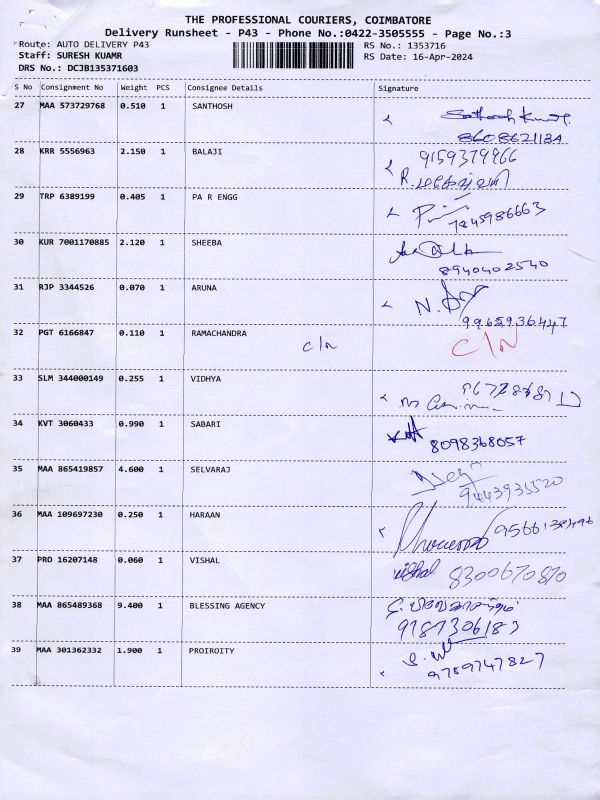 THE PROFESSIONAL COURIERS, COIMBATORE
Delivery Runsheet - P43 - Phone No.:0422-3505555 - Page No.:3
Route: AUTO DELIVERY P43
RS No.: 1353716
Staff: SURESH KUAMR
RS Date: 16-Apr-2024
DRS No.: DCJB135371603
S No Consignment No Weight PCS Consignee Details Signature
27 MAA 573729768 0.510 1 SANTHOSH
8608621134
28 KRR 5556963 2.150 1 BALAJI 9159379966
29 TRP 6389199 0.405 1 PA R ENGG
7845986663
30 KUR 7001170885 2.120 1 SHEEBA
8940402540
31 RJP 3344526 0.070 1 ARUNA
9965936447
32 PGT 6166847 0.110 1 RAMACHANDRA c/n C/N
33 SLM 344000149 0.255 1 VIDHYA
34 KVT 3060433 0.990 1 SABARI
8098368057
35 MAA 865419857 4.600 1 SELVARAJ
9443935520
36 MAA 109697230 0.250 1 HARAAN
37 PRO 16207148 0.060 1 VISHAL vishal 8300670870
38 MAA 865489368 9.400 1 BLESSING AGENCY
9787306183
39 MAA 301362332 1.900 1 PROIROITY
9789747827